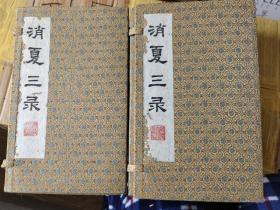 消夏三录
消夏三录